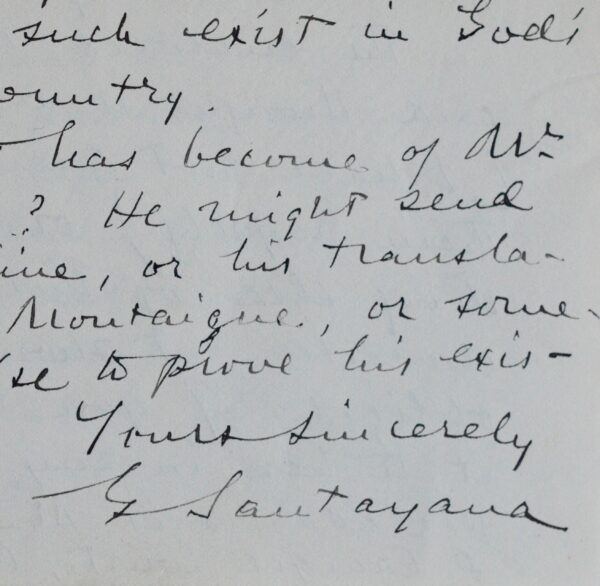 such exist in God's
ountry.
has become of Mr
? He might send
ine, or his transla-
Montaigne, or some-
se to prove his exis-
Yours sincerely
G Santayana